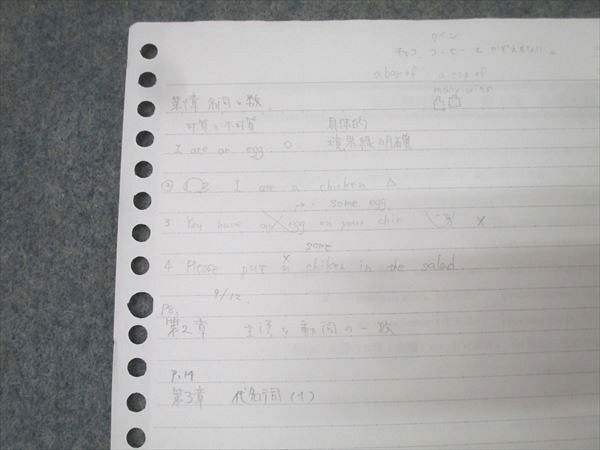 ワイン
チョコ コーヒー
a bar of a cup of
many wine
第1章 名詞と数
可算と不可算 具体的
I ate an egg. ○ 境界線明確
② I ate a chicken △
→ some egg
3 You have an egg on your chin ×
some
4 Please put a chiken in the salad.
9/12
第2章 主語と動詞の一致
P.14
第3章 代名詞(1)